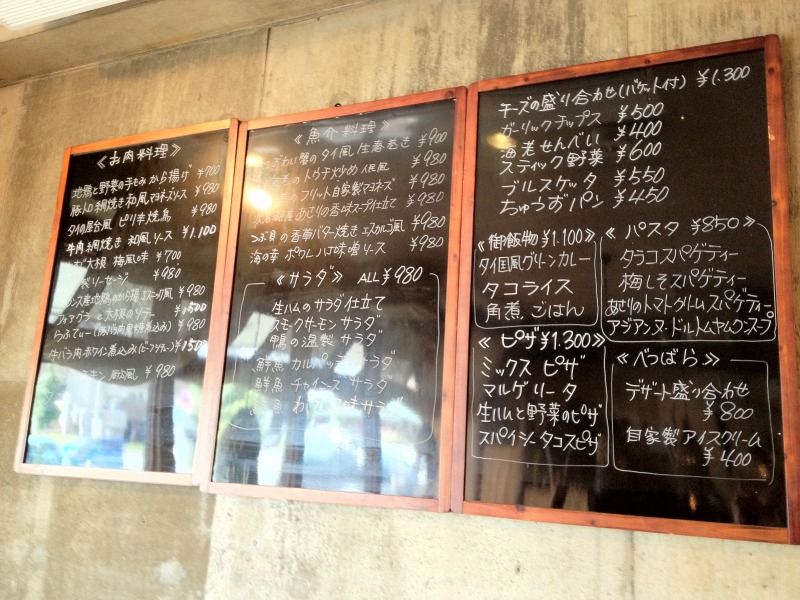 《お肉料理》
地鶏と野菜の手もみから揚げ ¥700
豚トロ網焼き和風マヨネーズソース ¥980
タイの屋台風 ピリ辛焼鳥 ¥980
牛肉網焼き 和風ソース ¥1,100
大根 梅風味 ¥700
製ソーセージ ¥980
産地鶏のから揚げ ¥980
フォアグラと大根のソテー
らふてぃー ¥980
牛バラ肉赤ワイン煮込み(ビーフシチュー) ¥1500
チキン ¥980
《魚介料理》
ずわい蟹のタイ風生春巻き ¥900
海老のトウチ炒め ¥980
のフリット自家製マヨネーズ ¥980
あさりの香味スープ仕立て ¥980
つぶ貝の香草バター焼き エスカルゴ風 ¥980
海の幸 ポワレ ハチ味噌ソース ¥980
《サラダ》 ALL ¥980
生ハムのサラダ仕立て
スモークサーモンサラダ
鴨の温製サラダ
鮮魚 カルパッチョサラダ
鮮魚 チャイニーズサラダ
わさび風味サラダ
チーズの盛り合わせ(バケット付) ¥1,300
ガーリックチップス ¥500
海老せんべい ¥400
スティック野菜 ¥600
ブルスケッタ ¥550
ちゅうずパン ¥450
《御飯物 ¥1,100》
タイ国風グリーンカレー
タコライス
角煮ごはん
《パスタ ¥850》
タラコスパゲティー
梅しそスパゲティー
あさりのトマトクリームスパゲティー
アジアンヌードルトムヤムクンスープ
《ピザ ¥1,300》
ミックスピザ
マルゲリータ
生ハムと野菜のピザ
スパイシータコスピザ
《べつばら》
デザート盛り合わせ
¥800
自家製アイスクリーム
¥400